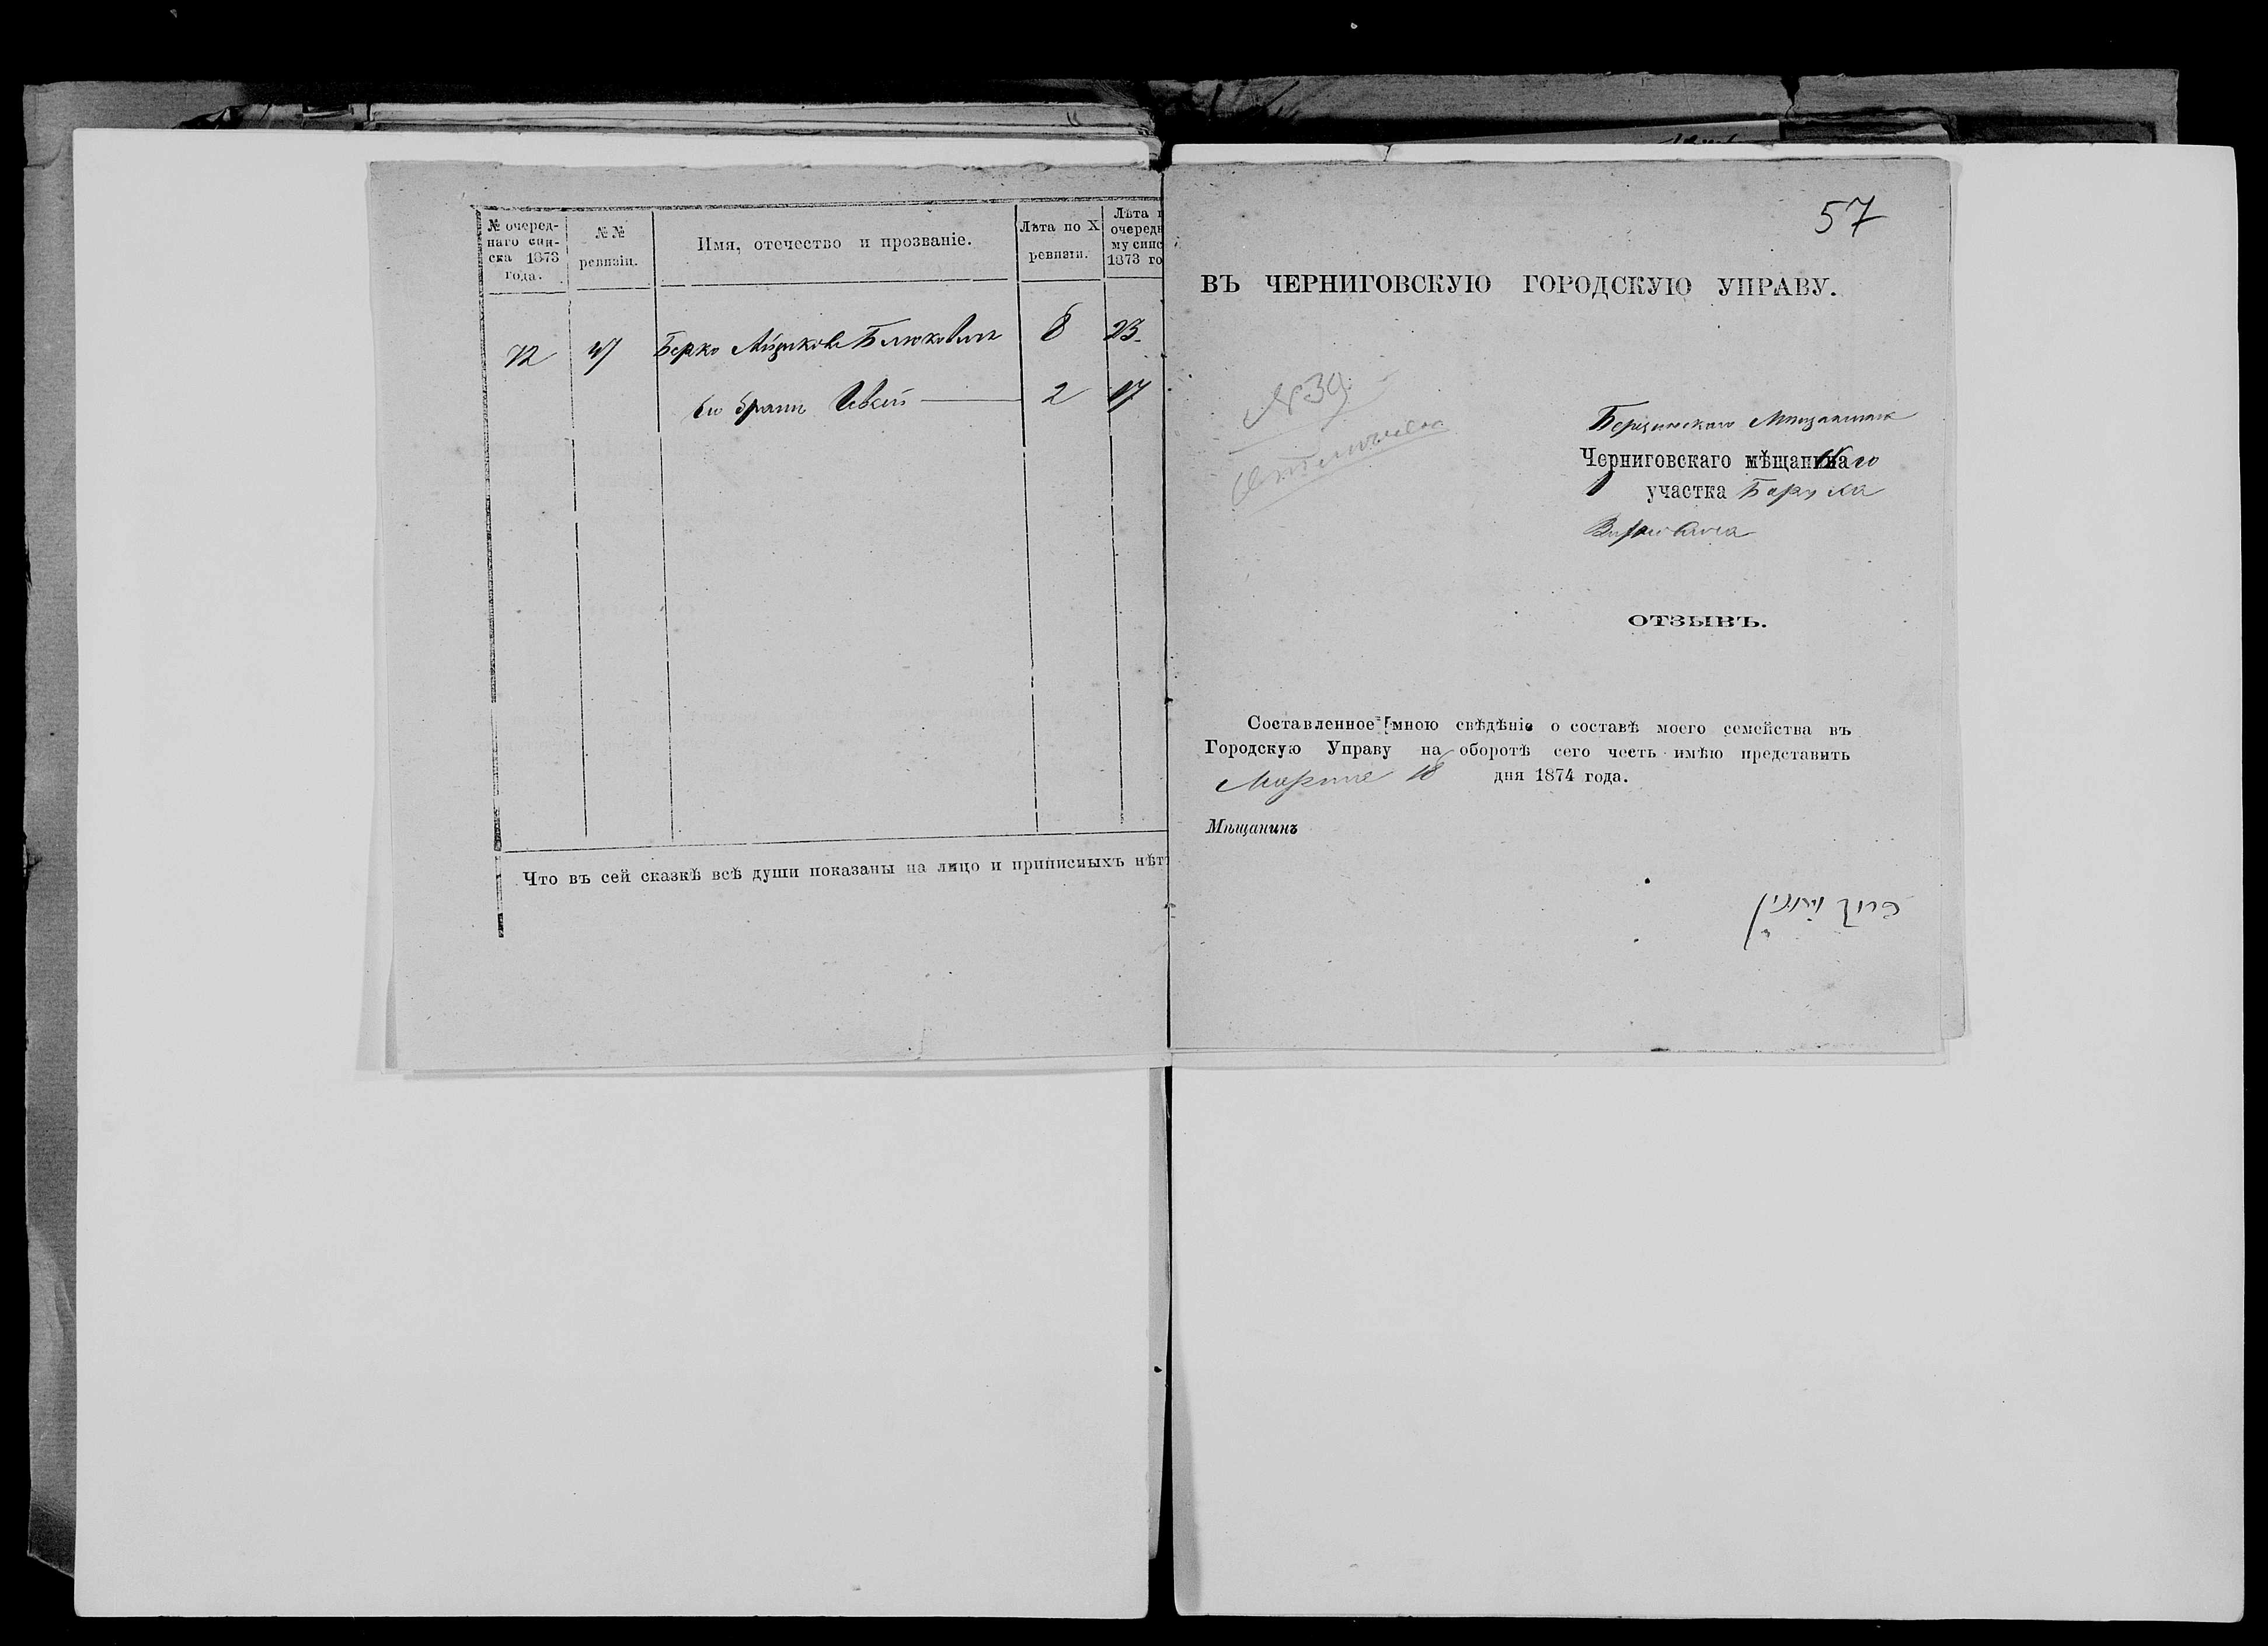 № очеред-
наго спи-
ска 1873
года.
№№
ревизіи.
Имя, отечество и прозваніе.
Лѣта по X
ревизіи.
Лѣта п
очередн
му спис
1873 го
72 47 Берко Айзиковъ 8 23
Его братъ 2 17
Что въ сей сказкѣ всѣ души показаны на лицо и приписныхъ нѣт
57
ВЪ ЧЕРНИГОВСКУЮ ГОРОДСКУЮ УПРАВУ.
№ 39
Черниговскаго мѣщанина
участка
ОТЗЫВЪ.
Составленное мною свѣдѣніе о составѣ моего семейства въ
Городскую Управу на оборотѣ сего честь имѣю представить
Марта 18 дня 1874 года.
Мѣщанинъ